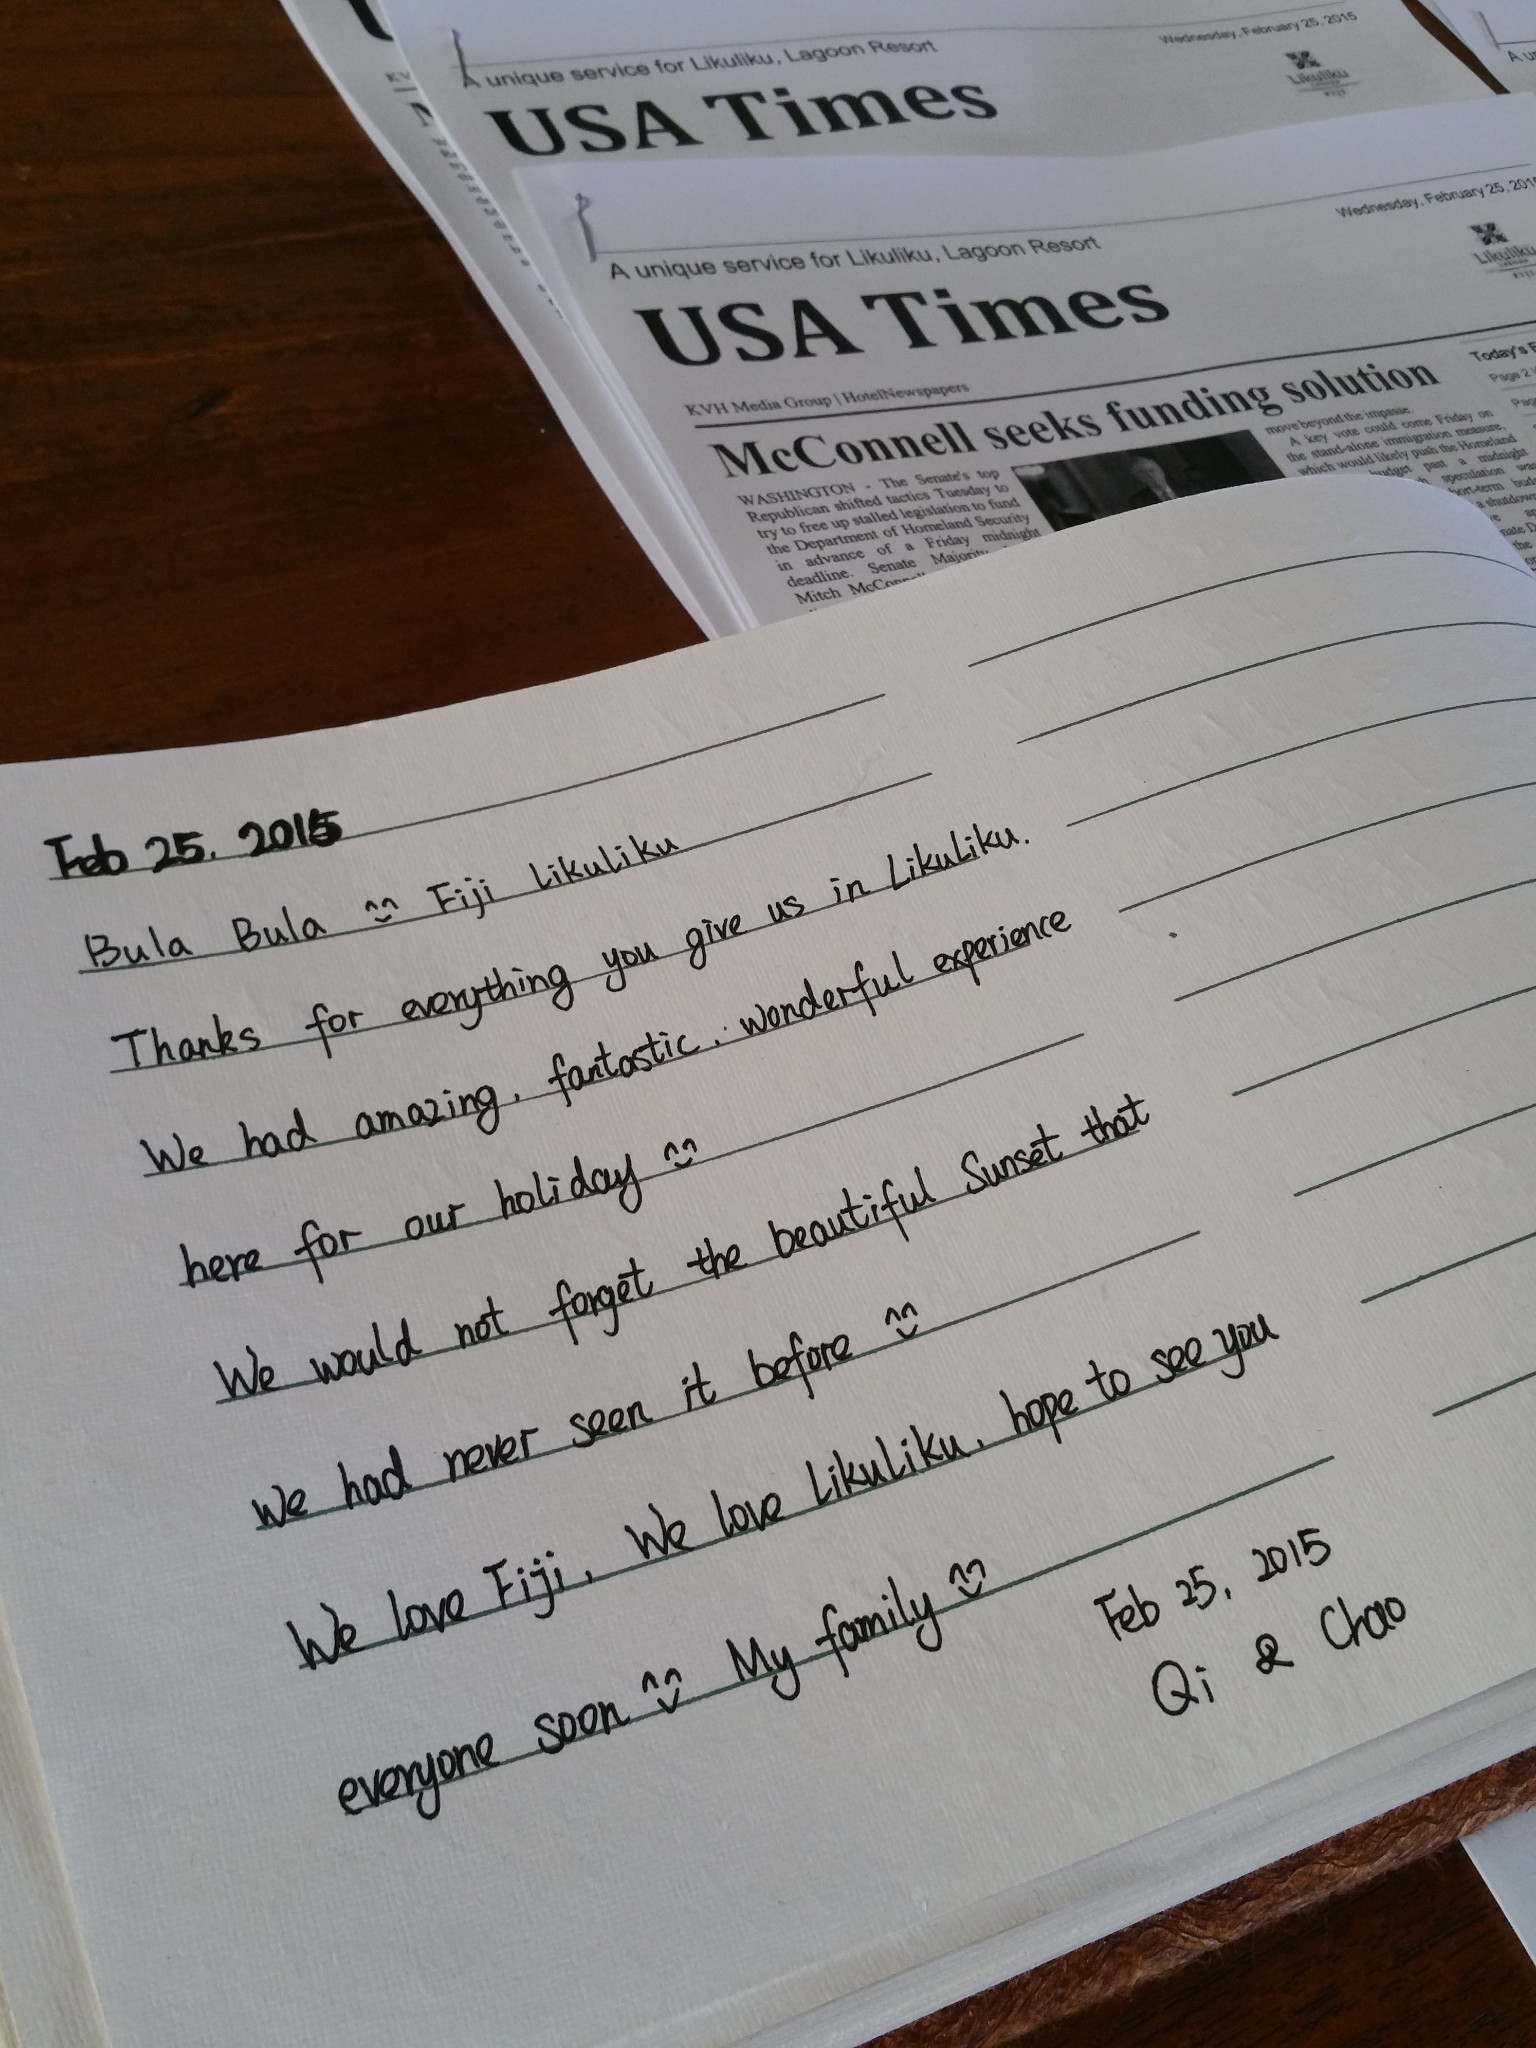 A unique service for Likuliku, Lagoon Resort
Wednesday, February 25, 2015
Likuliku
USA Times
A unique service for Likuliku, Lagoon Resort
Wednesday, February 25, 2015
Likuliku
USA Times
KVH Media Group | HotelNewspapers
McConnell seeks funding solution
WASHINGTON - The Senate's top
Republican shifted tactics Tuesday to
try to free up stalled legislation to fund
the Department of Homeland Security
in advance of a Friday midnight
deadline. Senate Majority
Mitch
move beyond the impasse.
A key vote could come Friday on
the stand-alone immigration measure,
which would likely push the Homeland
past a midnight
speculation
Today's
Page 2
Feb 25. 2015
Bula Bula ^^ Fiji Likuliku
Thanks for everything you give us in Likuliku.
We had amazing, fantastic, wonderful experience
here for our holiday ^^
We would not forget the beautiful Sunset that
we had never seen it before ^^
We love Fiji, We love Likuliku, hope to see you
everyone soon ^^ My family ^^
Feb 25, 2015
Qi & Chao